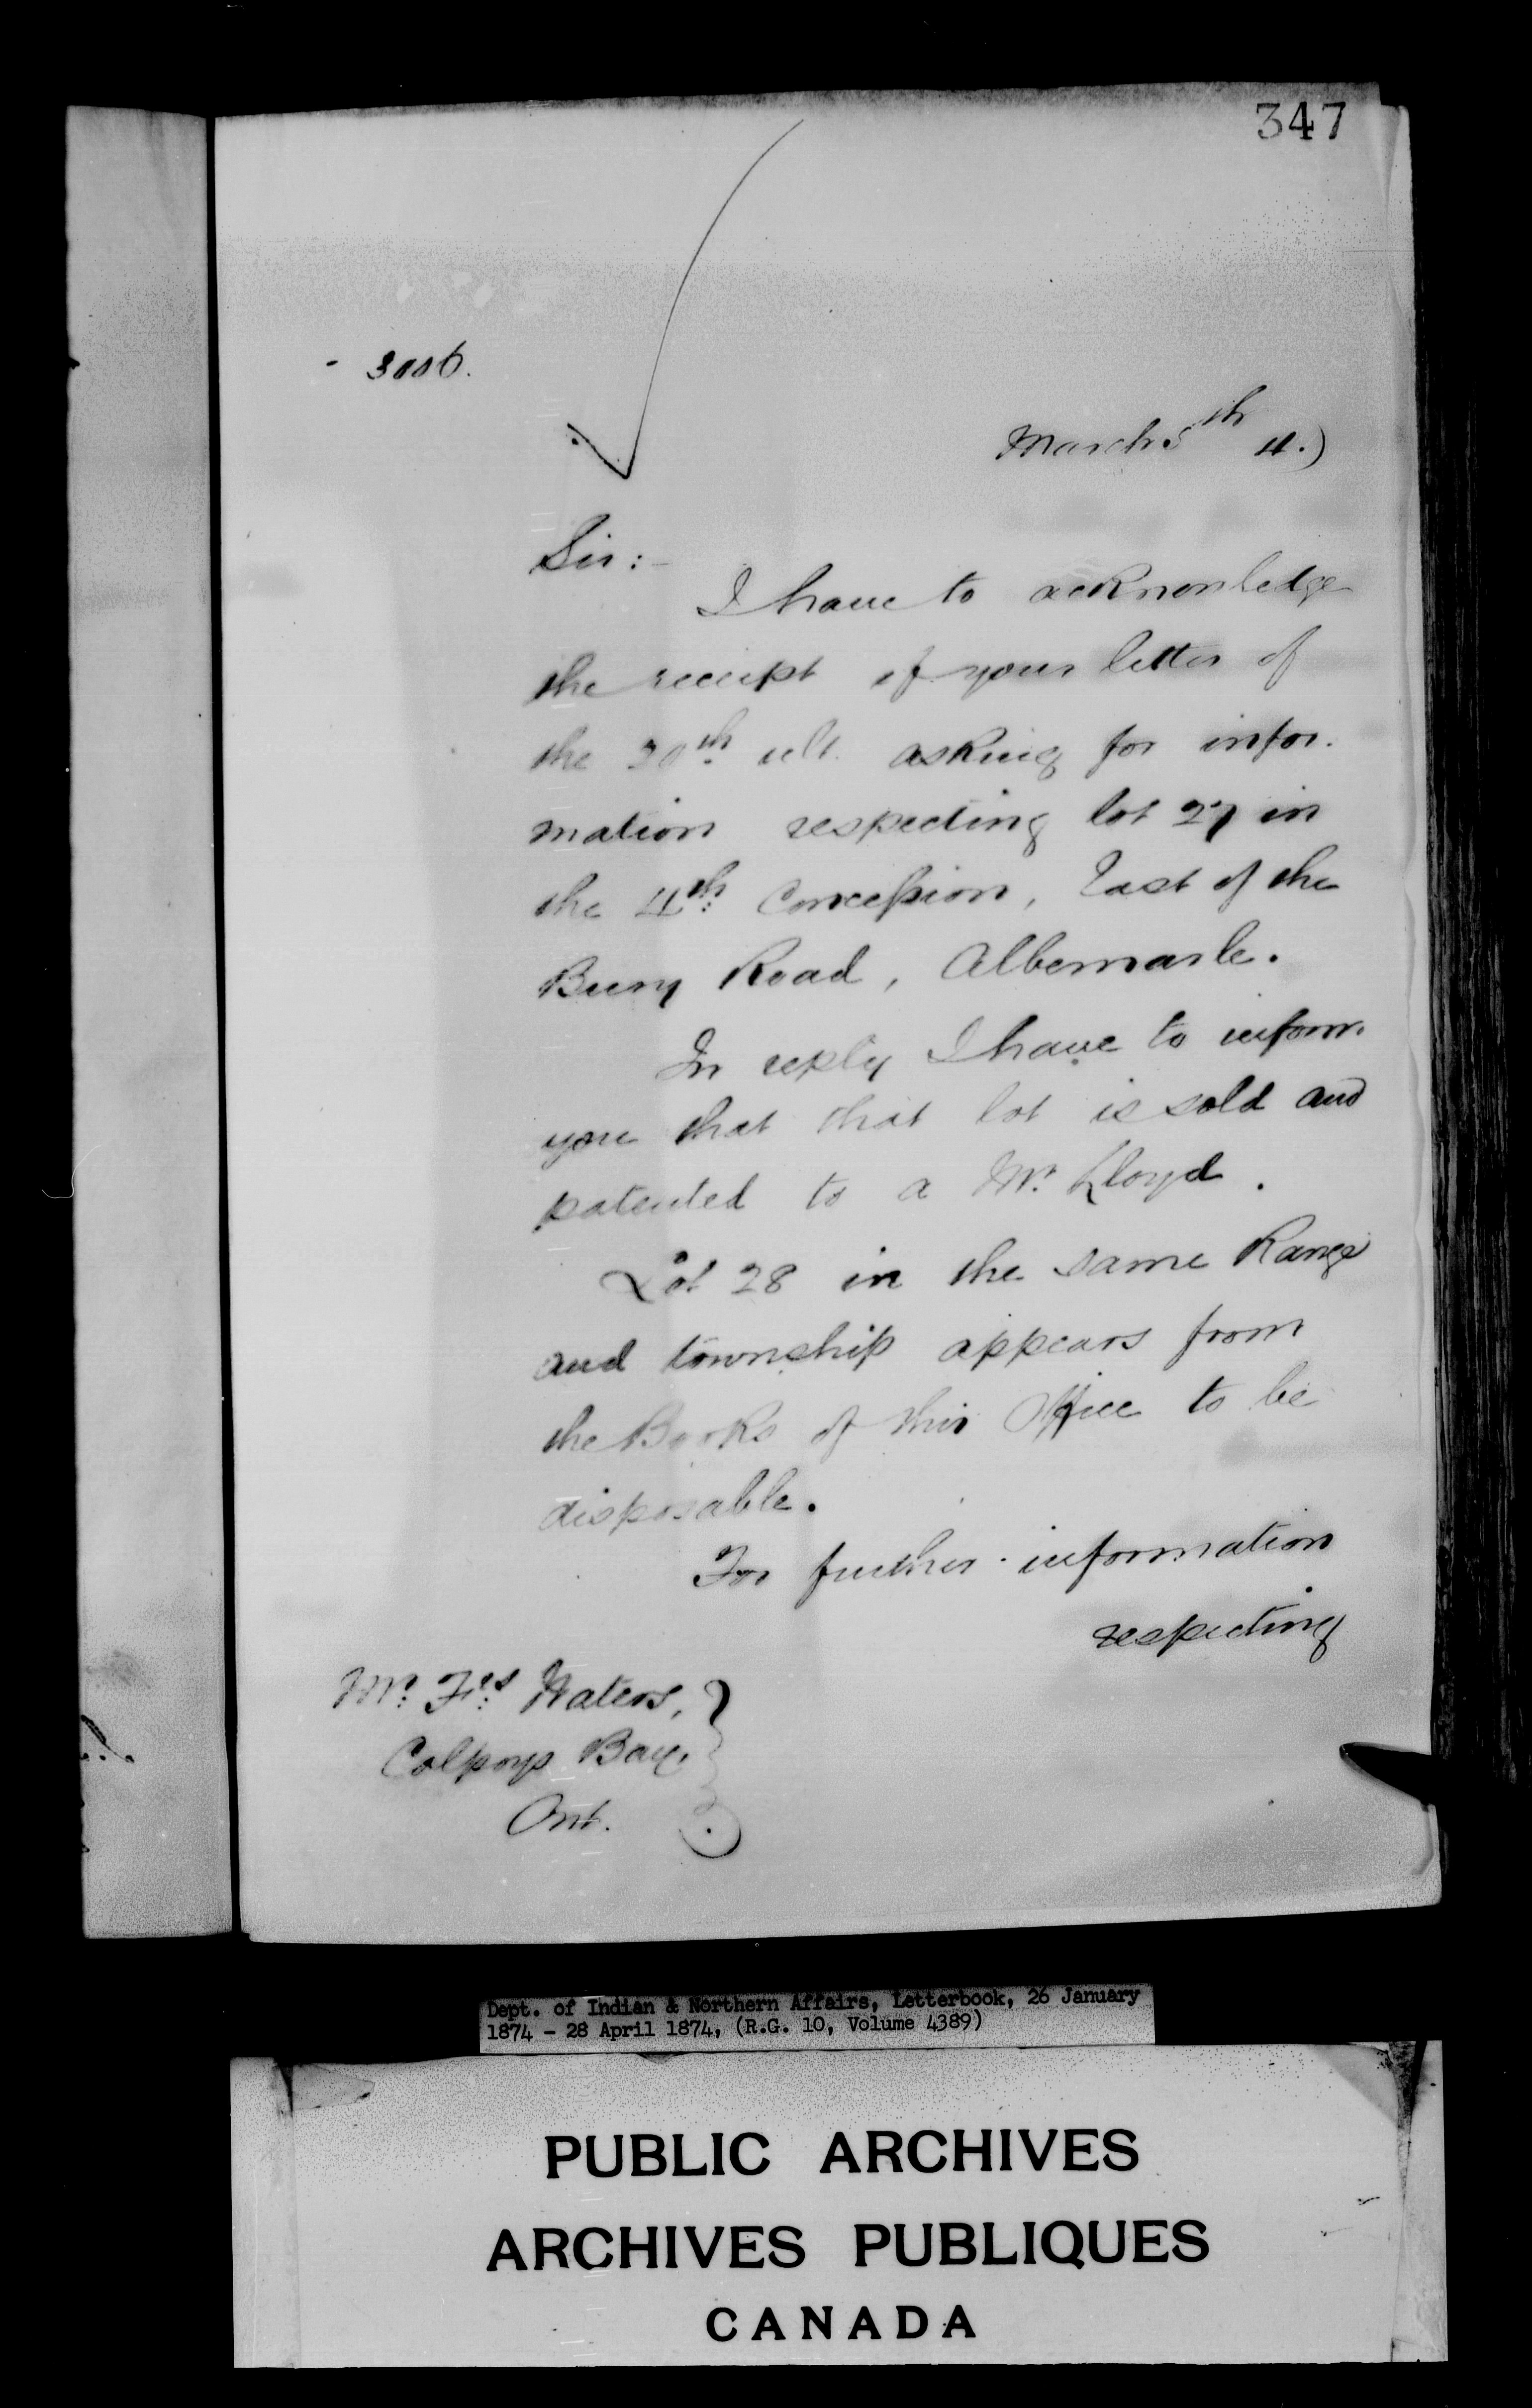 347
3006.
March 5th 4.)
Sir:-
I have to acknowledge
the receipt of your letter of
the 20th ult. asking for infor-
mation respecting lot 27 in
the 4th Concession, East of the
Bury Road, Albemarle.
In reply I have to inform
you that that lot is sold and
patented to a Mr. Lloyd.
Lot 28 in the same Range
and township appears from
the Books of this Office to be
disposable.
For further information
respecting
Mr. Frs Waters,
Colpoys Bay.
Ont.
Dept. of Indian & Northern Affairs, Letterbook, 26 January
1874 - 28 April 1874, (R.G. 10, Volume 4389)
PUBLIC ARCHIVES
ARCHIVES PUBLIQUES
CANADA